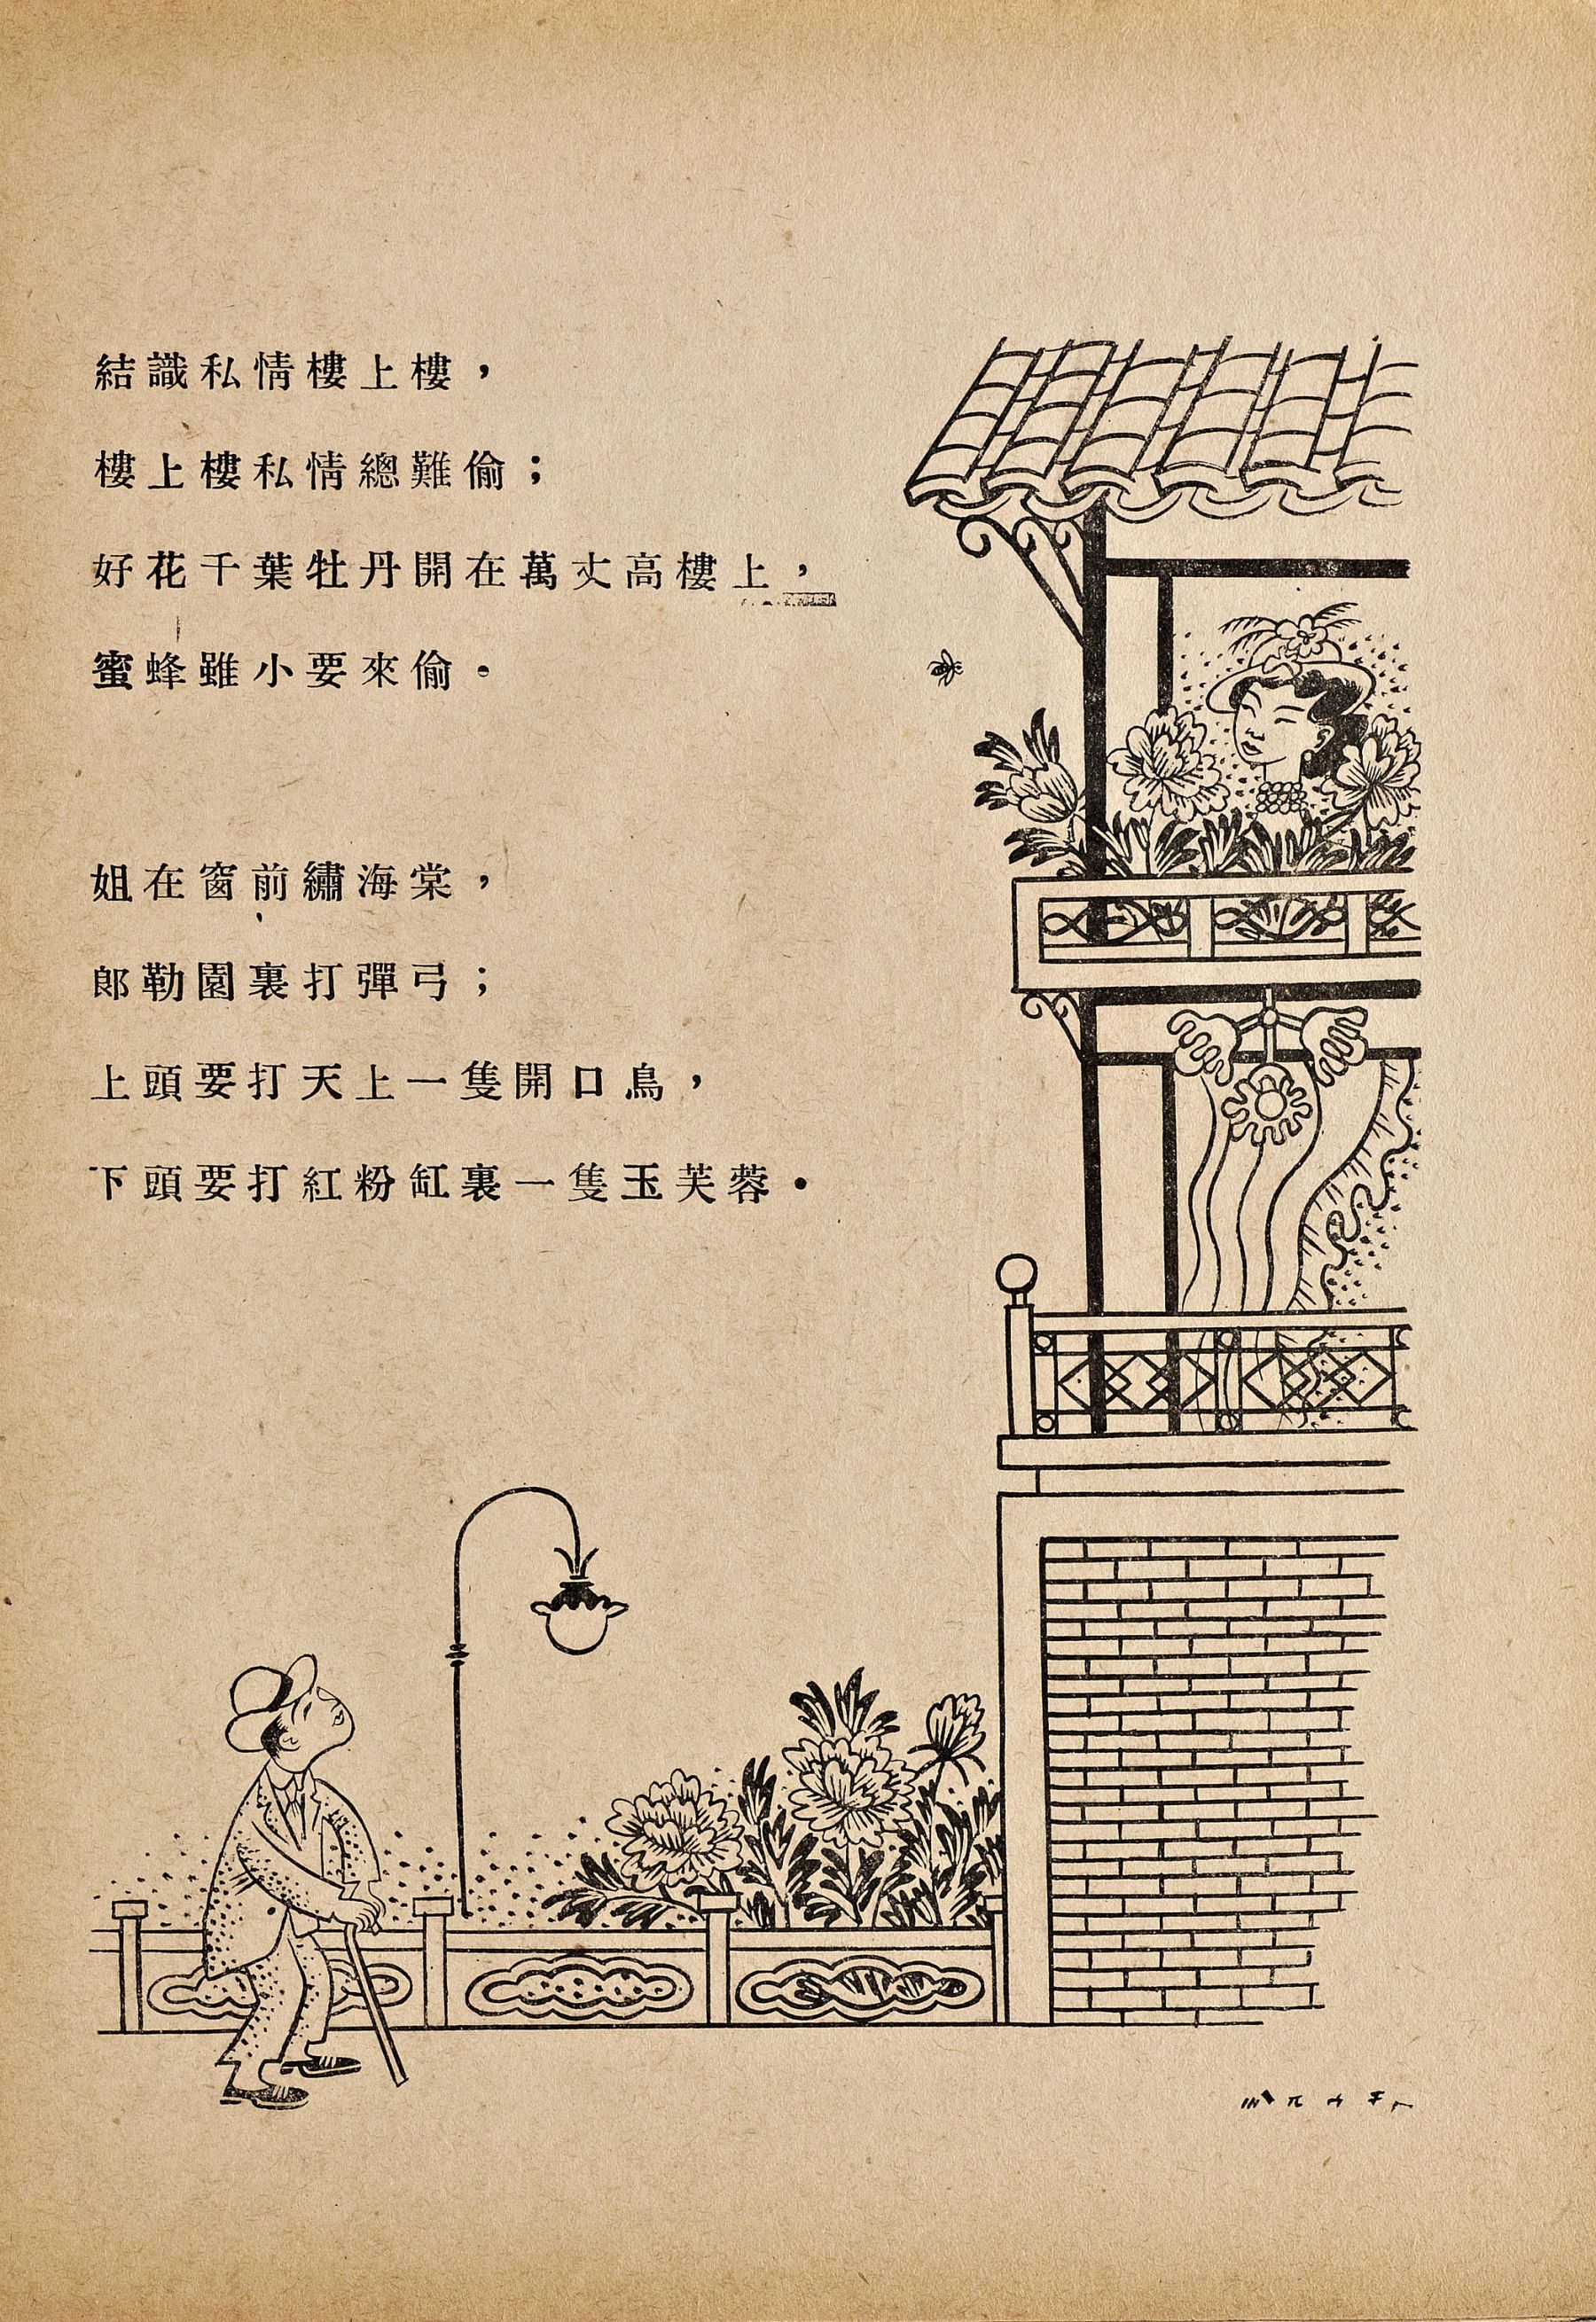 結識私情樓上樓，
樓上樓私情總難偷；
好花千葉牡丹開在萬丈高樓上，
蜜蜂雖小要來偷。
姐在窗前繡海棠，
郎勒園裏打彈弓；
上頭要打天上一隻開口鳥，
下頭要打紅粉缸裏一隻玉芙蓉。